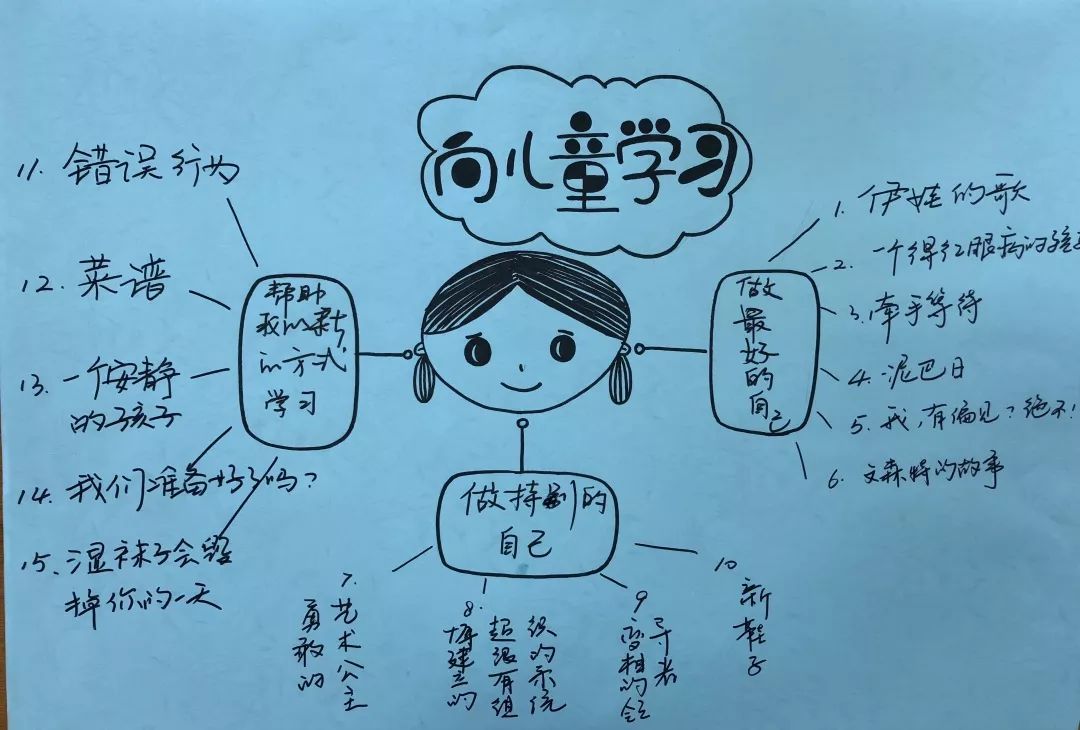 向儿童学习
做最好的自己
1. 伊娃的歌
2. 一个得红眼病的孩
3. 牵手等待
4. 泥巴日
5. 我,有偏见?绝不!
6. 文森特的故事
做特别的
自己
7. 勇敢的
艺术公主
8. 建立的
超级有组
织的系统
9 相的
导者
10 新鞋子
帮助
我以新
的方式
学习
11. 错误行为
12. 菜谱
13. 一个安静
的孩子
14. 我们准备好了吗?
15. 湿袜子会毁
掉你的一天